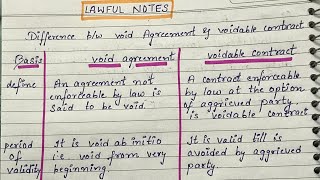 LAWFUL NOTES
Difference b/w void Agreement & voidable contract
Basis void agreement voidable contract
define An agreement not A contract enforceable
enforceable by law is by law at the option
said to be void. of aggrieved party.
is voidable contract
period It is void ab initio It is valid till is
of i.e. void from very avoided by aggrieved
validity beginning. party.